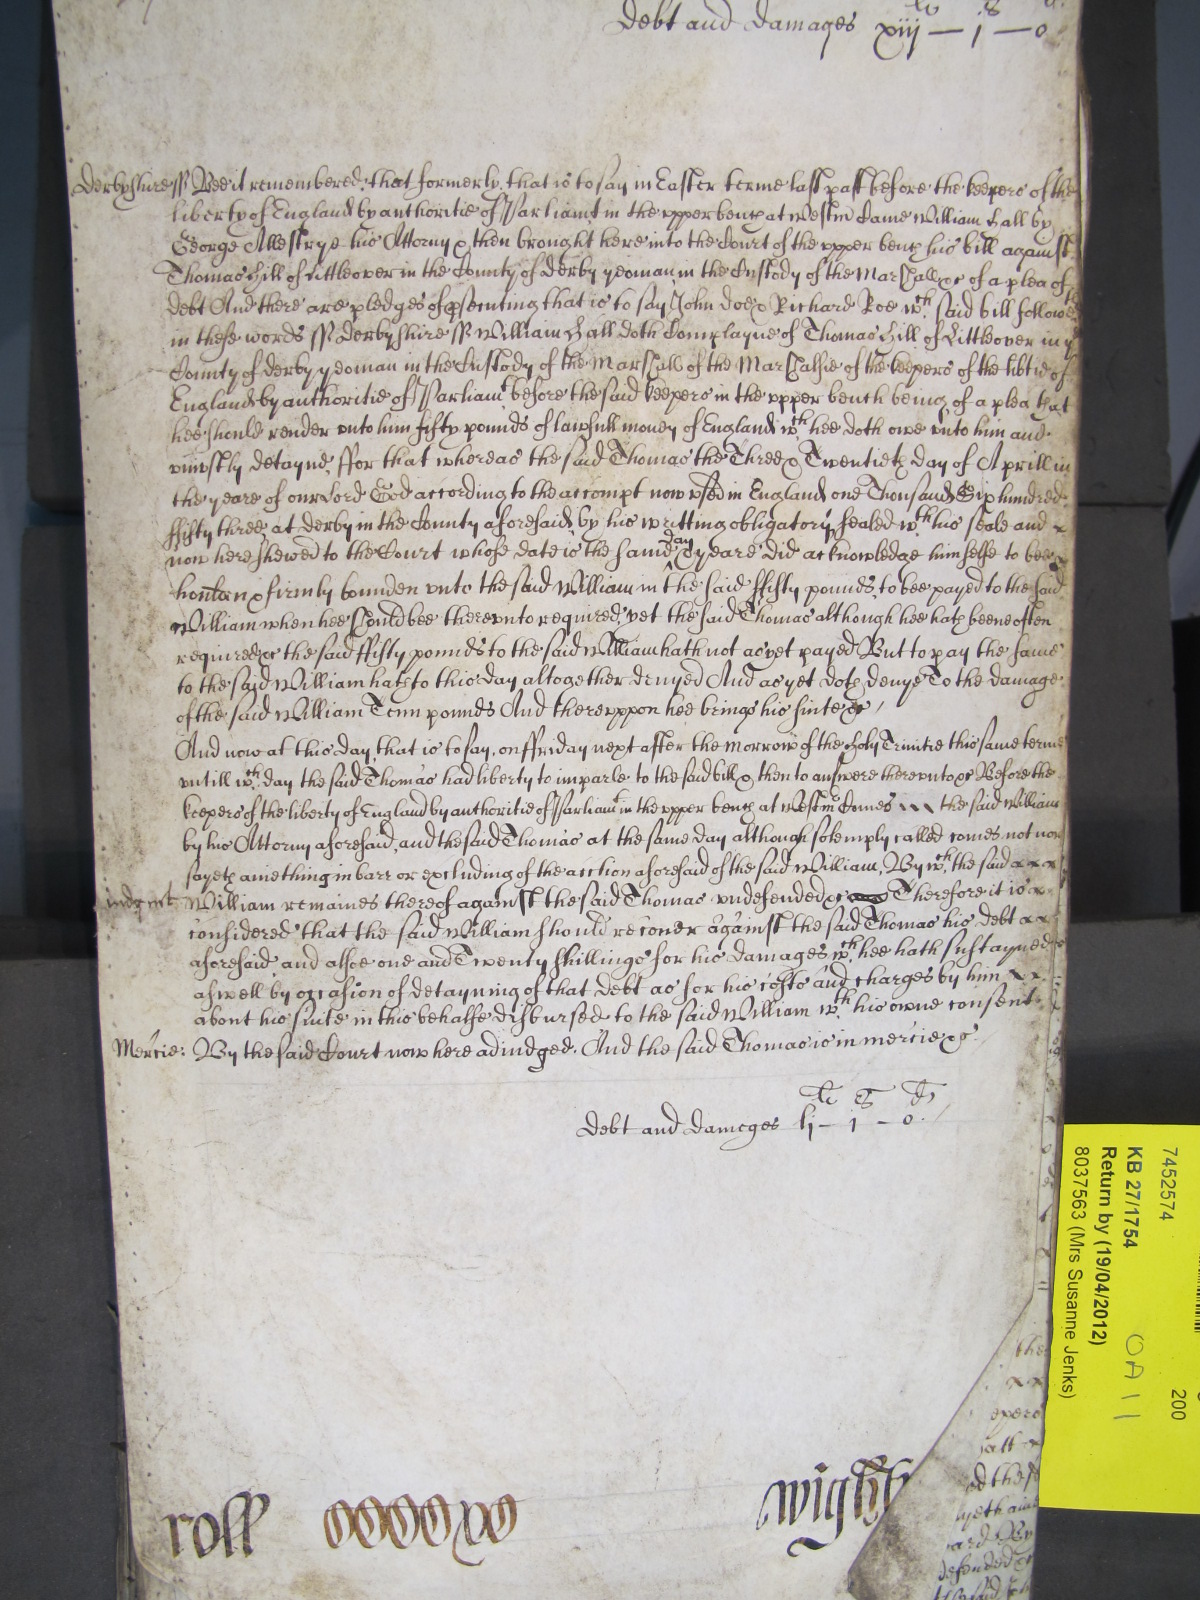 li s d
Debt and damages xiij — j — 0
Derbyshire ss Bee it remembred that formerly that is to say in Easter terme last past before the keepers of the
liberty of England by authoritie of Parliamt in the upper bench at Westm Came William Hall by
George Allestrye his Attorny & then brought here into the Court of the upper bench his bill against
Thomas Hill of Littleover in the County of Derby yeoman in the Custody of the Marshall &c of a plea of
debt And there are pledges of psecuting that is to say John Doe & Richard Roe wch said bill followes
in these words ss Derbyshire ss William Hall doth Complayne of Thomas Hill of Littleover in ye
County of Derby yeoman in the Custody of the Marshall of the Marshalsie of the keepers of the libtie of
England by authoritie of Parliamt before the said keepers in the upper bench being of a plea that
hee should render unto him fifty pounds of lawfull money of England wch hee doth owe unto him and
uniustly detayne ffor that whereas the said Thomas the Three & Twentieth day of Aprill in
the yeare of our Lord God according to the accompt now used in England one Thousand Six hundred
ffifty three at Derby in the County aforesaid by his writting obligatory sealed wth his seale and
now here shewed to the Court whose date is the same day & yeare did acknowledge himselfe to bee
houlden & firmly bounden unto the said William in the said ffifty pounds to bee payed to the said
William when hee should bee thereunto required yet the said Thomas although hee hath beene often
required &c the said ffifty pounds to the said William hath not as yet payed But to pay the same
to the said William hath to this day altogether denyed And as yet doth denye To the damage
of the said William Tenn pounds And thereuppon hee brings his suite &c
And now at this day that is to say on ffriday next after the morrow of the holy Trinitie this same terme
untill wch day the said Thomas had liberty to imparle to the said bill & then to answere thereunto &c Before the
keepers of the liberty of England by authoritie of Parliamt in the upper bench at Westmr Comes the said William
by his Attorny aforesaid, and the said Thomas at the same day although solemply called comes not nor
sayeth anie thing in barr or excluding of the action aforesaid of the said William, By wch the said
iudgmt William remaines thereof against the said Thomas undefended &c Therefore it is
considered that the said William should recover against the said Thomas his debt
aforesaid and alsoe one and Twenty shillings for his damages wch hee hath sustayned
aswell by occasion of detayning of that debt as for his costs and charges by him
about his suite in this behalfe disbursed to the said William wth his owne consent
Mercie: By the said Court now here adiudged. And the said Thomas is in mercie &c.
li s d
Debt and damages lj — j — 0
roll
wight
7452574
200
KB 27/1754
OA 11
Return by (19/04/2012)
8037563 (Mrs Susanne Jenks)